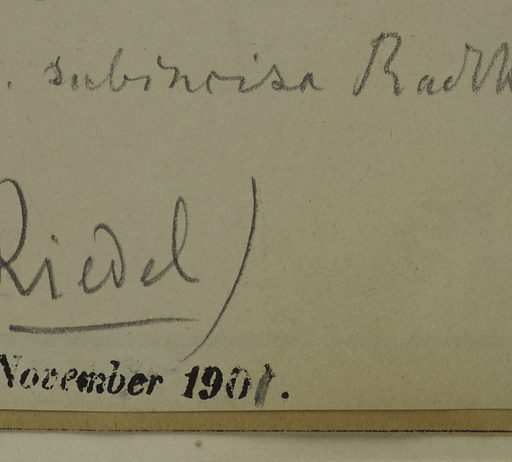 . subincisa Radlk
Riedel)
November 1901.